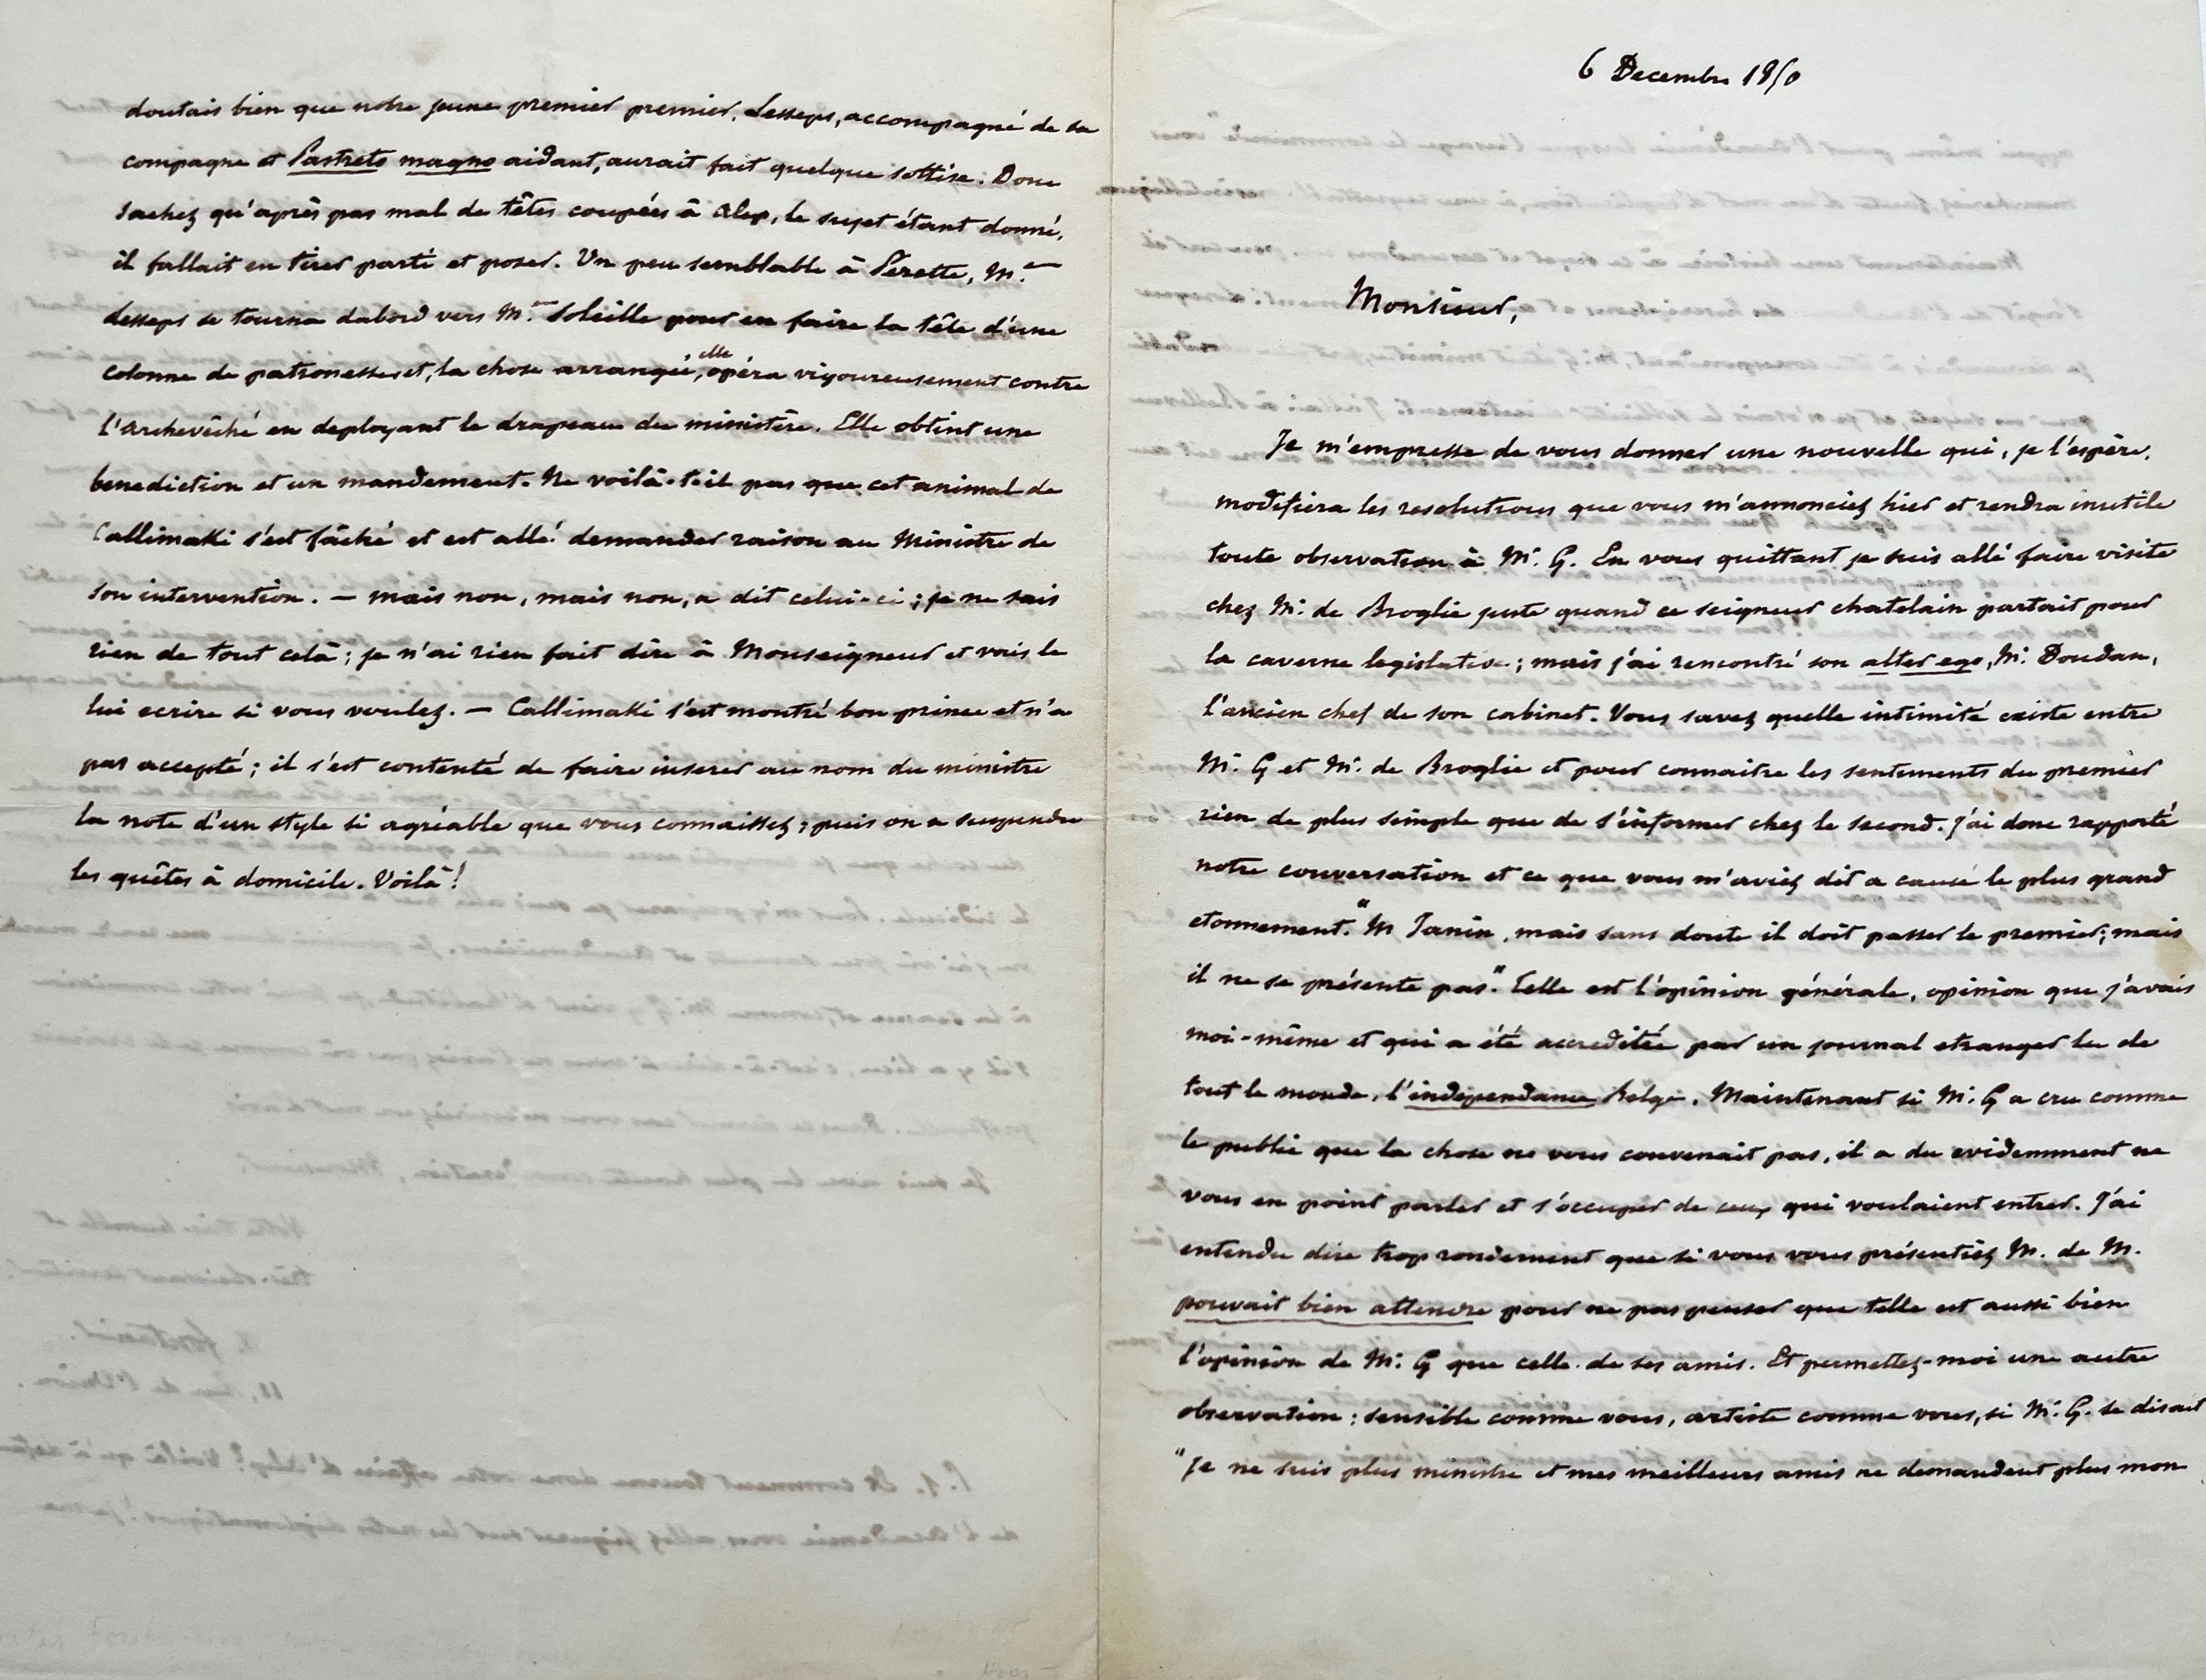 6 Decembre 1850
Monsieur,
Je m'empresse de vous donner une nouvelle qui, je l'espère,
modifiera les resolutions que vous m'annonciez hier et rendra inutile
toute observation à Mr. G. En vous quittant je suis allé faire visite
chez Mr. de Broglie juste quand ce seigneur chatelain partait pour
la caverne legislative ; mais j'ai rencontré son alter ego, Mr. Doudan,
l'ancien chef de son cabinet. Vous savez quelle intimité existe entre
Mr. G et Mr. de Broglie et pour connaitre les sentements du premier
rien de plus simple que de s'informer chez le second. J'ai donc rapporté
notre conversation et ce que vous m'aviez dit a causé le plus grand
etonnement. "M Janin, mais sans doute il doit passer le premier; mais
il ne se présente pas". Telle est l'opinion générale, opinion que j'avais
moi-même et qui a été accreditée par un journal etranger lu de
tout le monde, l'independance Belge. Maintenant si Mr. G a cru comme
le public que la chose ne vous convenait pas, il a du evidemment ne
vous en point parler et s'occuper de ceux qui voulaient entrer. J'ai
entendu dire trop rondement que si vous vous présentiez M. de M.
pouvait bien attendre pour ne pas penser que telle est aussi bien
l'opinion de Mr. G que celle de ses amis. Et permettez-moi une autre
observation : sensible comme vous, artiste comme vous, si Mr. G. se disait
"Je ne suis plus ministre et mes meilleurs amis ne demandent plus mon
doutais bien que notre jeune premier premier, Lesseps, accompagné de sa
compagne et Pastreto magno aidant, aurait fait quelque sottise. Donc
sachez qu'après pas mal de têtes coupées à Alep, le sujet étant donné,
il fallait en tirer parti et poser. Un peu semblable à Pérette, Me
Lesseps se tourna dabord vers Me Soleille pour en faire la tête d'une
colonne de patronesses et, la chose arrangée, elle opéra vigoureusement contre
l'Archevêché en deployant le drapeau du ministère. Elle obtint une
benediction et un mandement. Ne voilà-t-il pas que cet animal de
Callimaki s'est fâché et est allé demander raison au Ministre de
son intervention. — mais non, mais non, a dit celui-ci ; je ne sais
rien de tout celà ; je n'ai rien fait dire à Monseigneur et vais le
lui ecrire si vous voulez. — Callimaki s'est montré bon prince et n'a
pas accepté ; il s'est contenté de faire inserer au nom du ministre
la note d'un style si agréable que vous connaissez ; puis on a suspendu
les quêtes à domicile. Voilà !